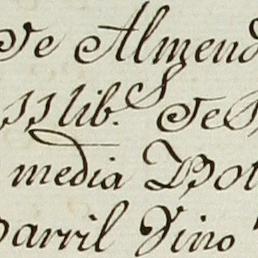 de Almend
11 lib.s de
media Bot
Barril Vino